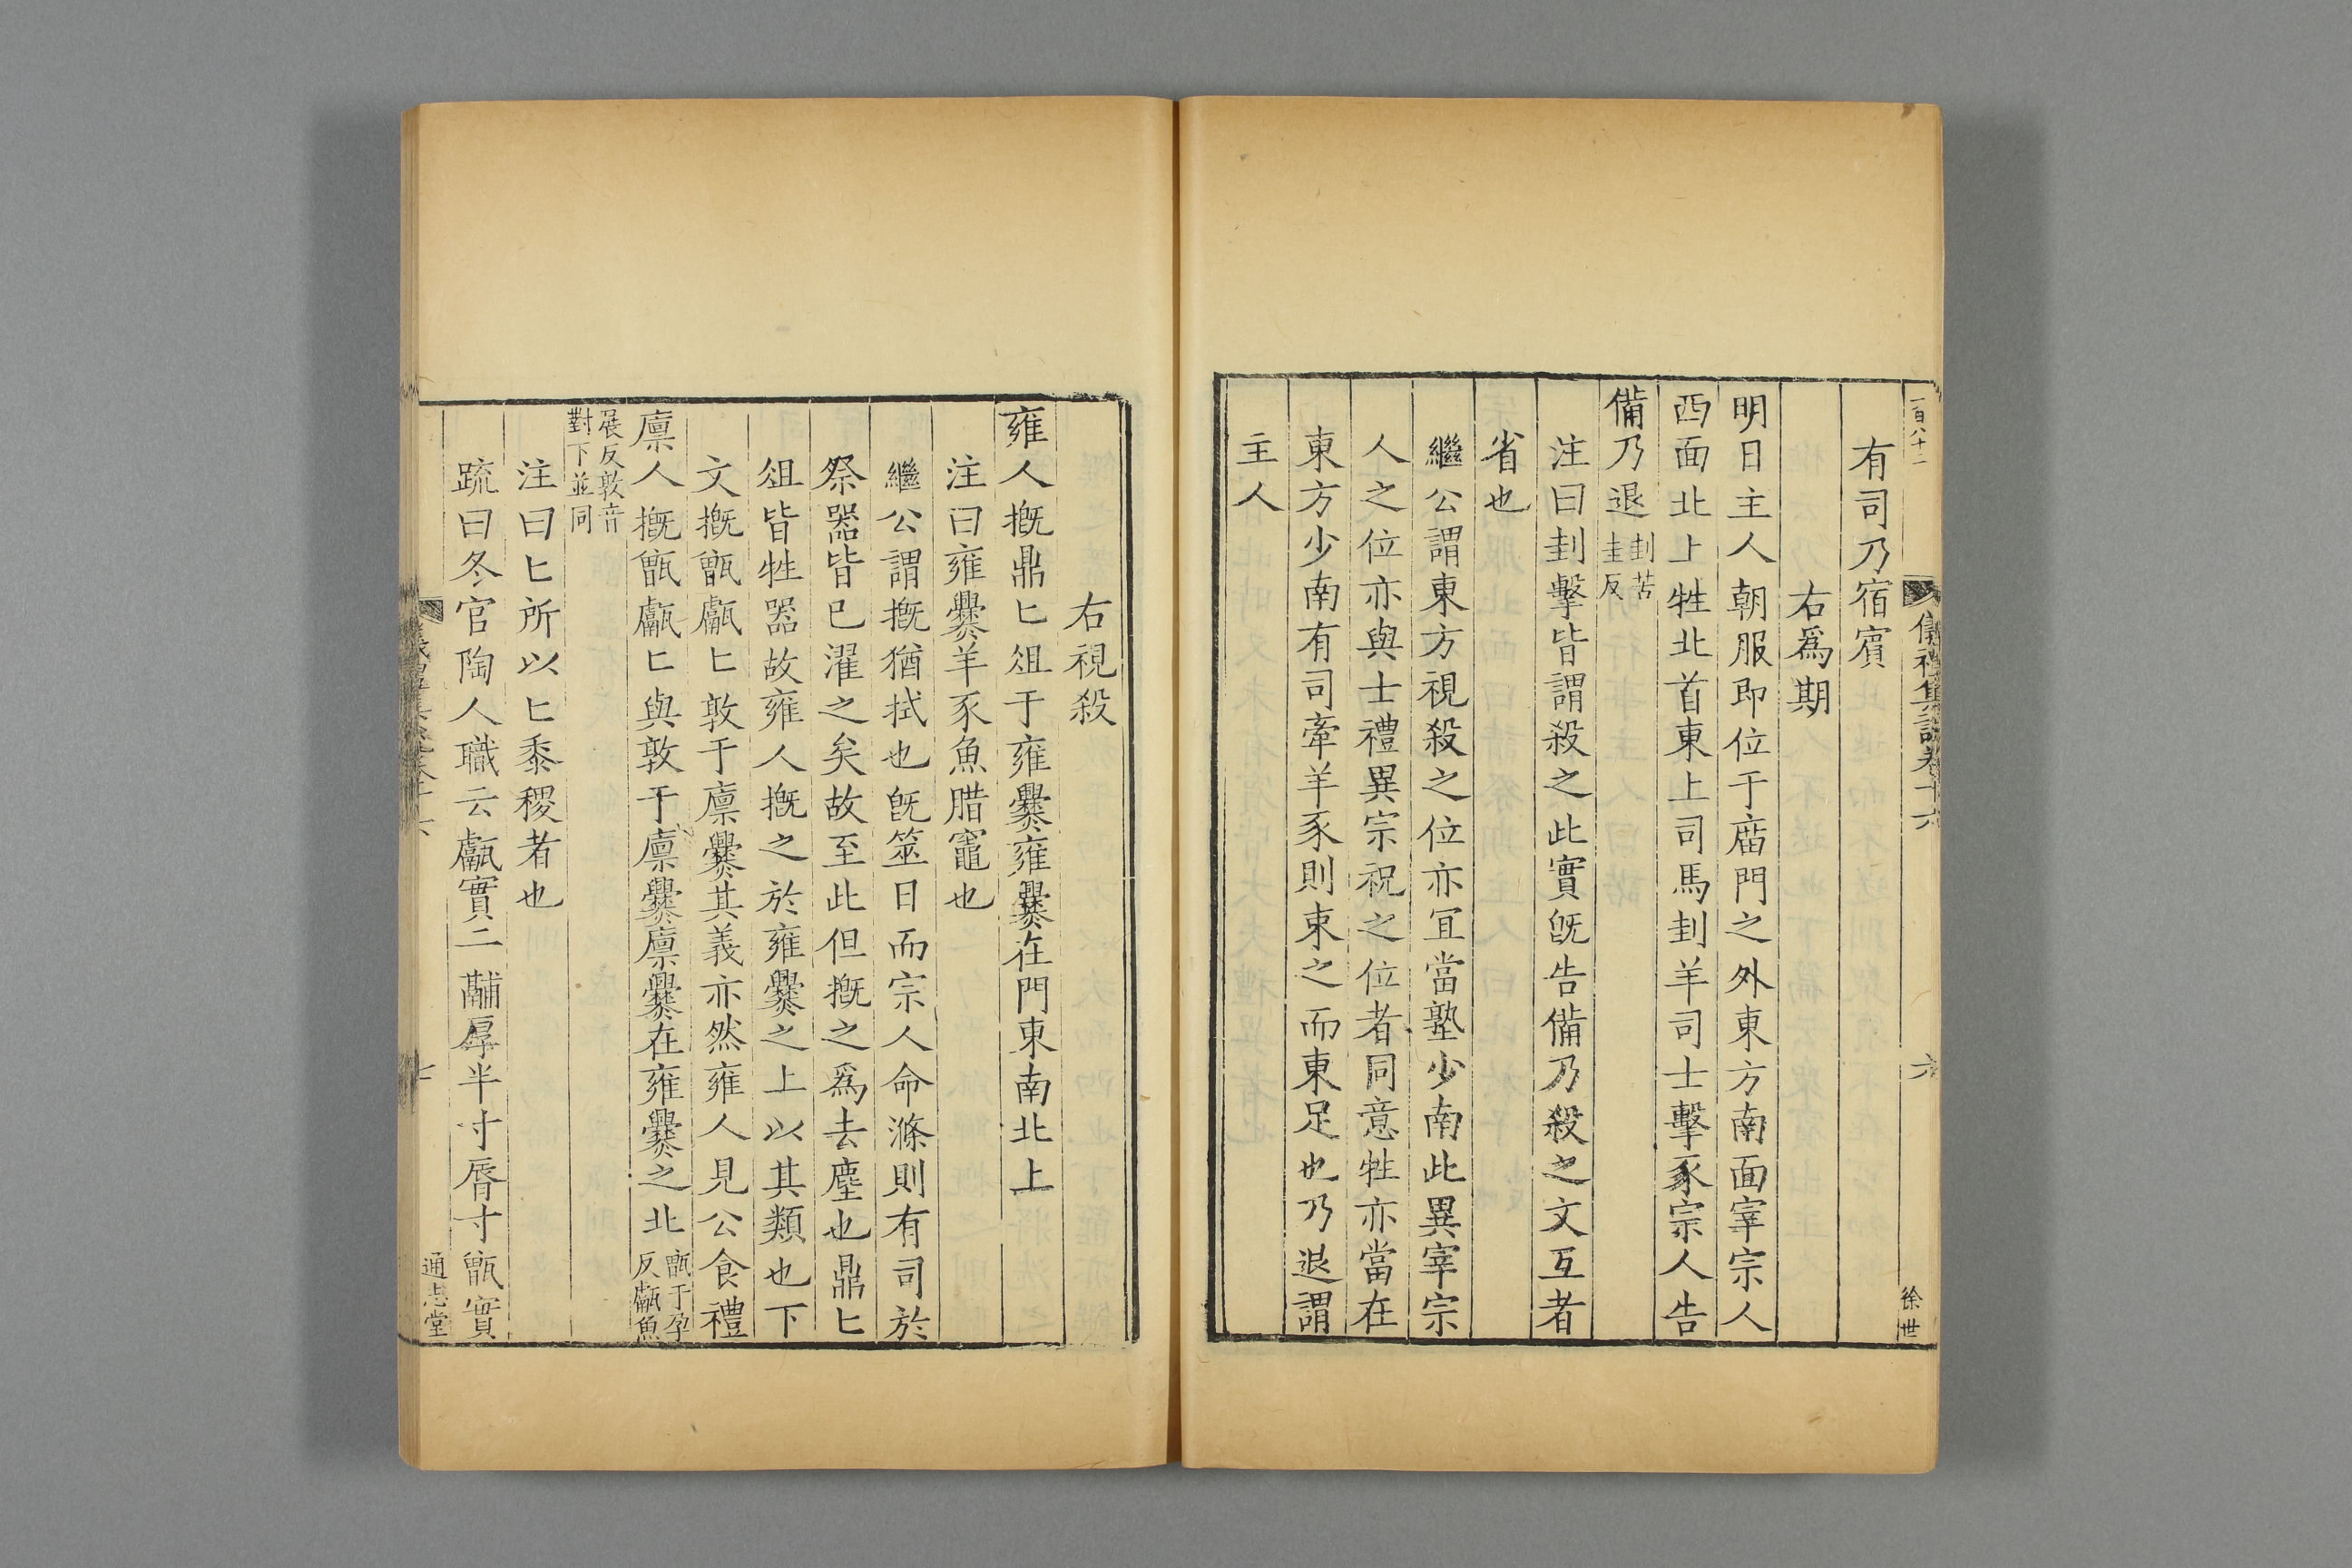 一百八十一
儀禮集說卷十六
六
徐世
有司乃宿賔
右爲期
明日主人朝服即位于廟門之外東方南面宰宗人
西面北上牲北首東上司馬刲羊司士擊豕宗人告
備乃退刲苦圭反
注曰刲擊皆謂殺之此實旣告備乃殺之文互者
省也
繼公謂東方視殺之位亦宜當塾少南此異宰宗
人之位亦與士禮異宗祝之位者同意牲亦當在
東方少南有司牽羊豕則束之而東足也乃退謂
主人
右視殺
雍人摡鼎匕俎于雍爨雍爨在門東南北上
注曰雍爨羊豕魚腊竈也
繼公謂摡猶拭也旣筮日而宗人命滌則有司於
祭器皆已濯之矣故至此但摡之爲去塵也鼎匕
俎皆牲器故雍人摡之於雍爨之上以其類也下
文摡甑甗匕敦于廪爨其義亦然雍人見公食禮
廪人摡甑甗匕與敦于廪爨廪爨在雍爨之北甑子孕反甗魚
展反敦音對下並同
注曰匕所以匕黍稷者也
疏曰冬官陶人職云甗實二鬴厚半寸脣寸甑實
七
通志堂